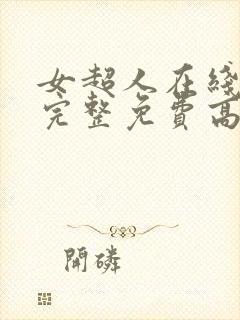 女超人在綫
完整免費高
開磷